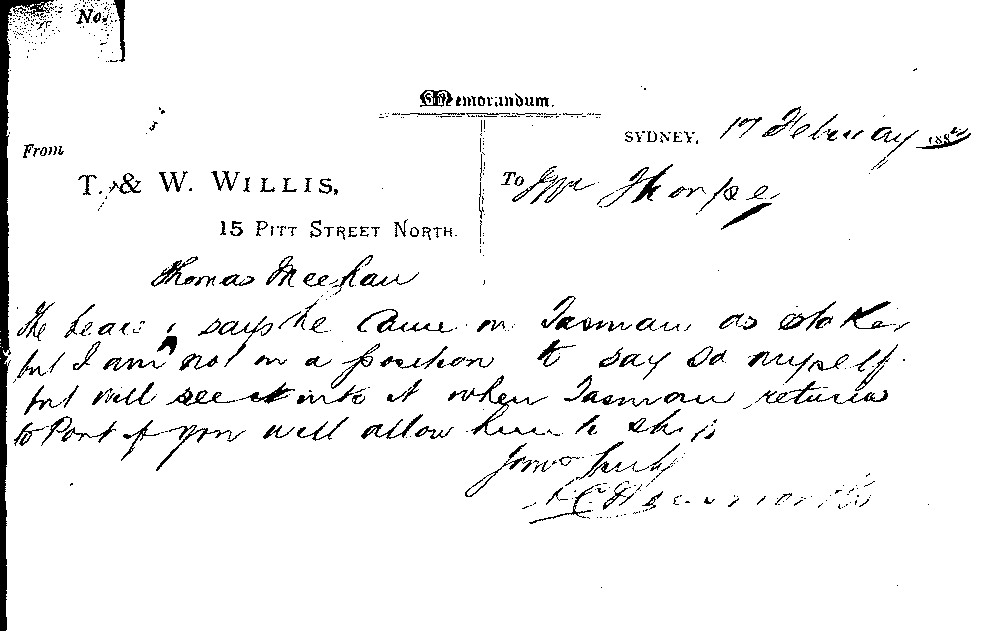 No.
Memorandum.
SYDNEY, 17 February 188
From
T. & W. WILLIS,
To Mr Thorpe
15 PITT STREET NORTH.
Thomas Meehan
The bearer says he came in Tasman as stoker
but I am not in a position to say so myself.
but will see into it when Tasman returns
to Port if you will allow him to ship
Yours truly